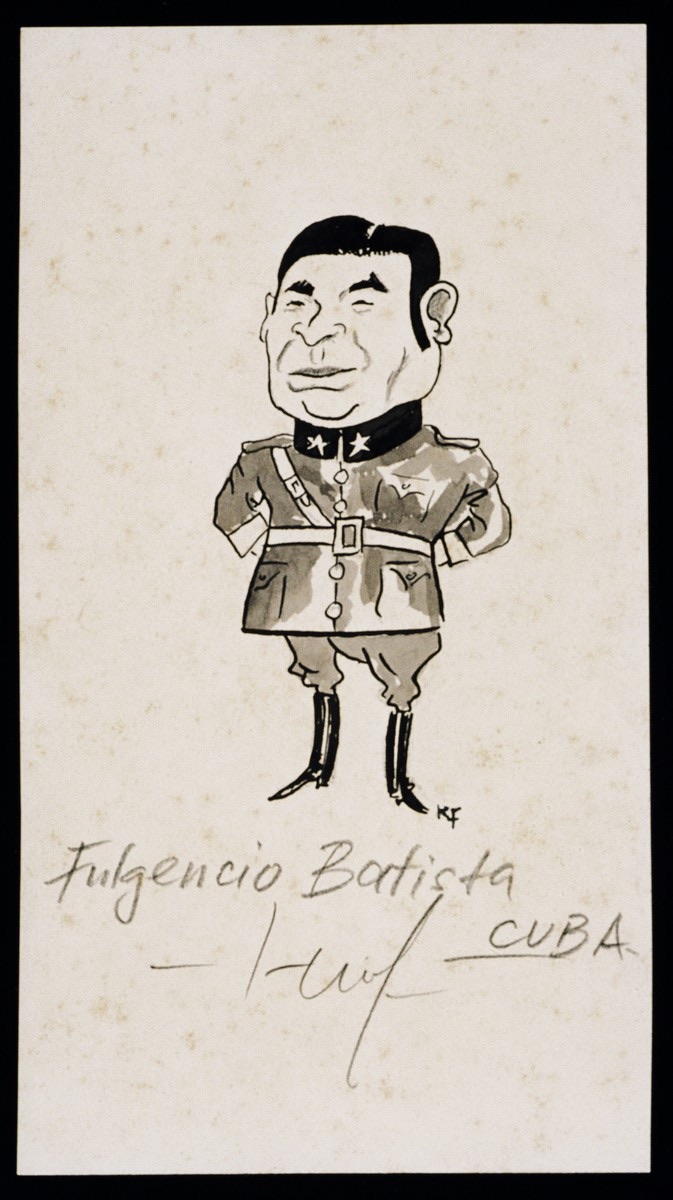 KF
Fulgencio Batista
CUBA.